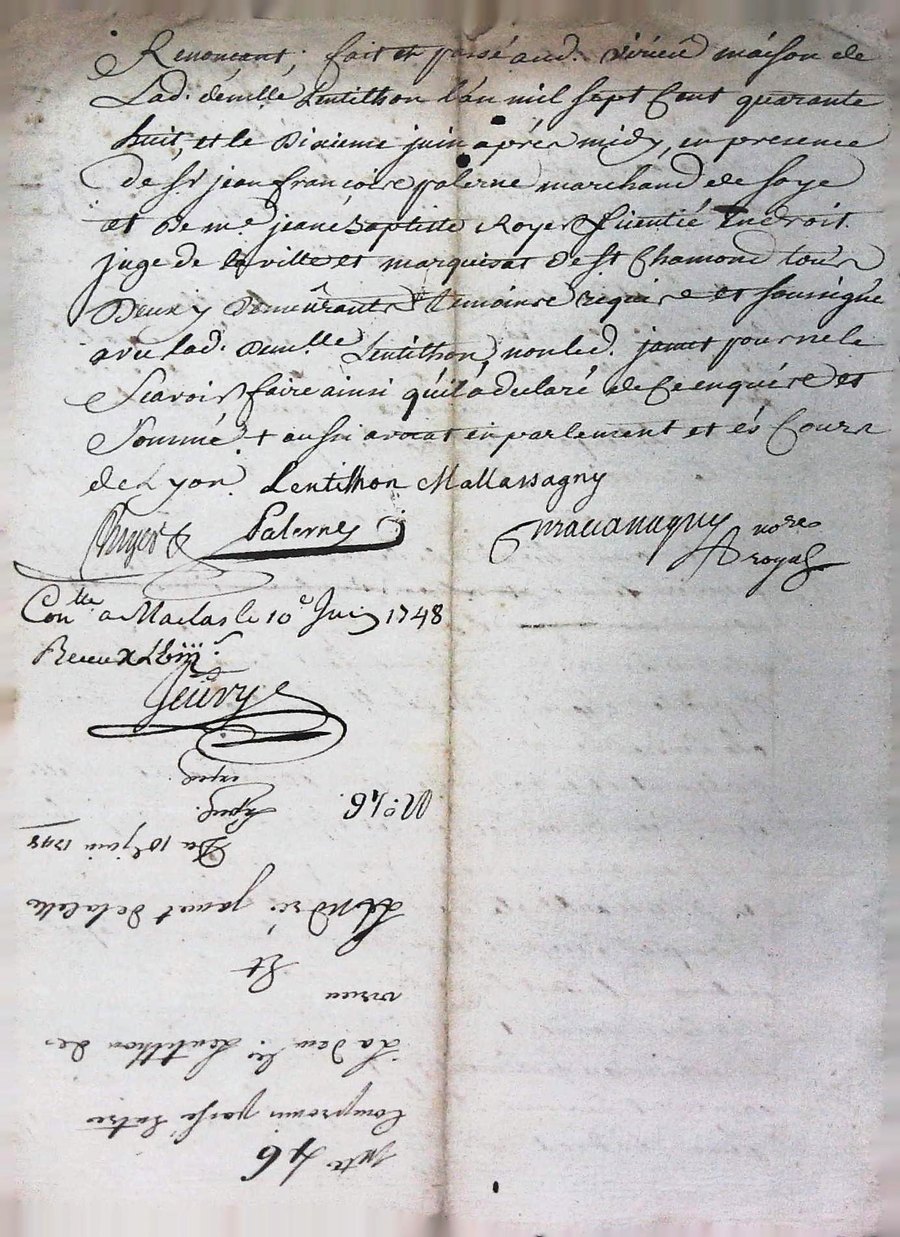 Renoncant, fait et passé aud. virieu maison de
Lad. demlle Lentilhon L'an mil sept Cent quarante
huit, et le dixieme juin après midy, en presence
de Sr jean francois palerne marchand de soye
et de me jean baptiste Royer Licentié En droit
juge de la ville et marquisat de St Chamond tous
Deux y demeurants + temoins requis et soussigné
avec lad. Demlle Lentilhon, non led. janut pour ne le
Scavoir faire ainsi qu'il a declaré de ce enquis et
Sommé. + aussi avocat en parlement et és Cours
de Lyon. Lentilhon Mallassagny
Royer Palerne
nore
royal
Conlle a Maclas le 10e Juin 1748
Receu
No: 46
Du 10e juin 1748
André janut
Et
virieu
La demlle Lentilhon de
Compromis passé Entre
46